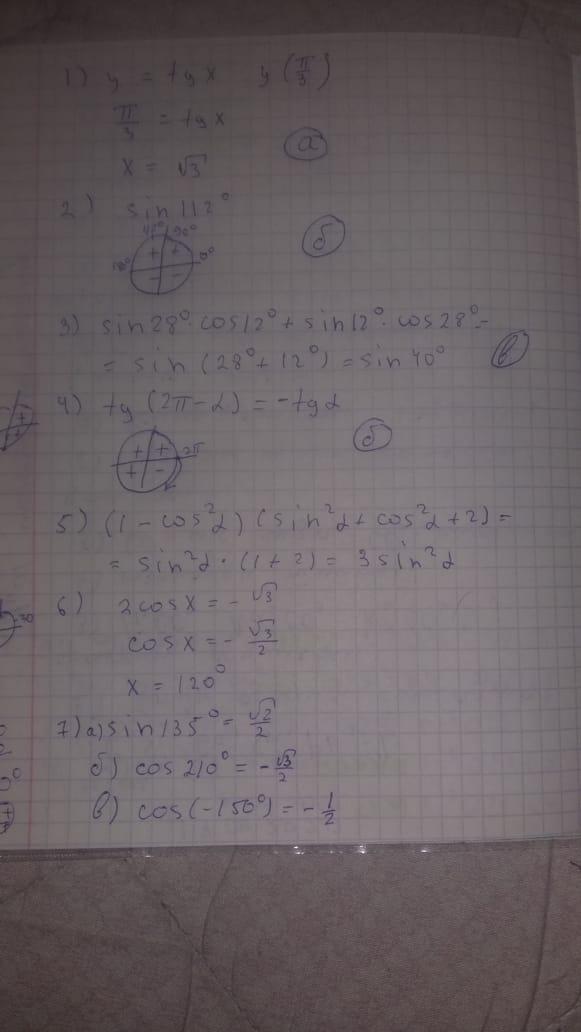 1) y = tg x y (π/3)
π/3 = tg x
x = √3 а
2) sin 112°
90°
180° 0° б
+ +
- -
3) sin 28° · cos 12° + sin 12° · cos 28° =
= sin (28° + 12°) = sin 40° в
4) tg (2π - α) = - tg α
+ + 2π б
+ -
5) (1 - cos²α) (sin²α + cos²α + 2) =
= sin²α · (1 + 2) = 3 sin²α
6) 2 cos x = - √3
cos x = - √3/2
x = 120°
7) а) sin 135° = √2/2
б) cos 210° = - √3/2
в) cos (-150°) = - 1/2